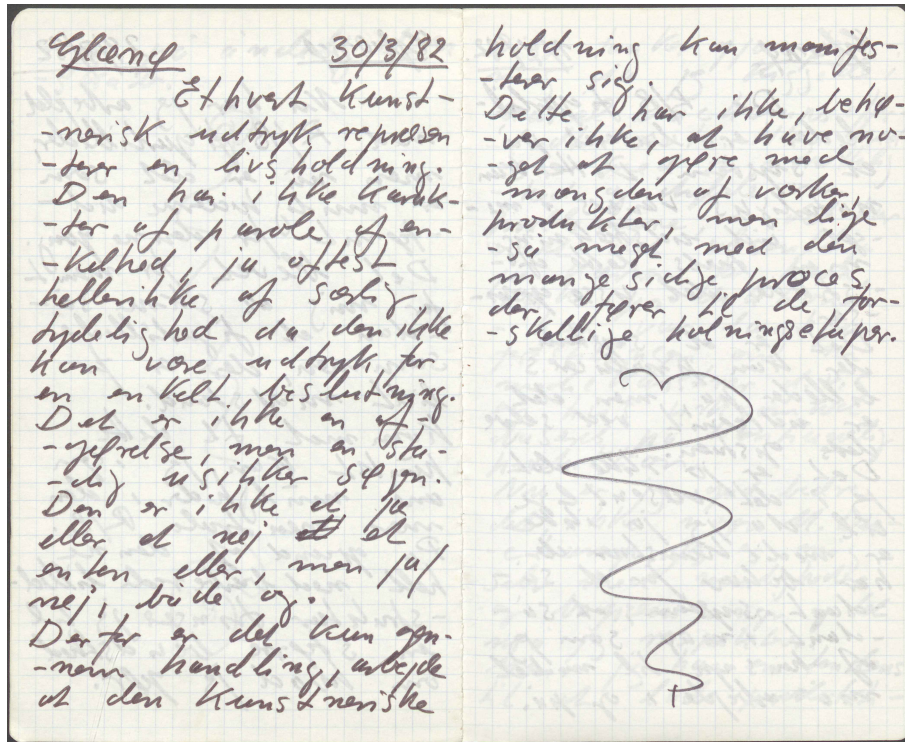 Glænø 30/3/82
Ethvert kunst-
-nerisk udtryk repræsen
-terer en livsholdning.
Den har ikke karak-
-ter af parole af en-
-kelhed, ja oftest
heller ikke af særlig
tydelighed da den ikke
kan være udtryk for
en enkelt beslutning.
Det er ikke en af-
-gørelse, men en sta-
-dig usikker søgen.
Den er ikke et ja
eller et nej et
enten eller, men ja/
nej, både og.
Derfor er det kun gen-
-nem handling, arbejde
at den kunstneriske
holdning kan manifes-
-terer sig.
Dette har ikke, behø-
-ver ikke, at have no-
-get at gøre med
mængden af værker,
produkter, men lige
-så meget med den
mangesidige proces
der fører til de for-
-skellige holningsetaper.